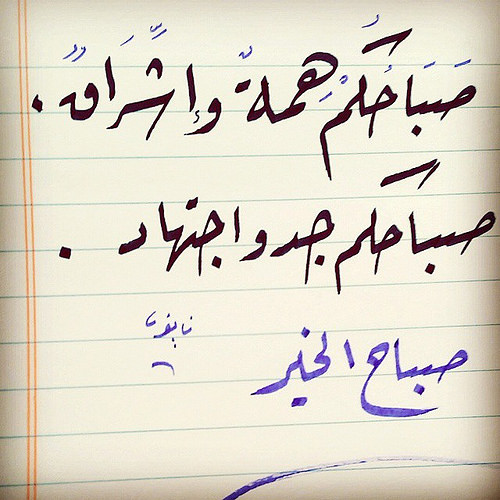 صَبَاحُكُمْ هِمّة وإشّرَاقٌ .
صباحكم جد واجتهاد .
صباح الخير